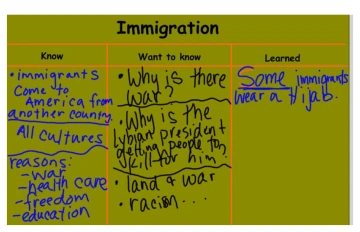 Immigration
Know
• immigrants
Come to
America from
another country.
All cultures
reasons:
- war
- health care
- freedom
- education
Want to know
• Why is there
war?
• Why is the
Lybian president
getting people to
kill for him?
• land & war
• racism...
Learned
Some immigrants
wear a Hijab.